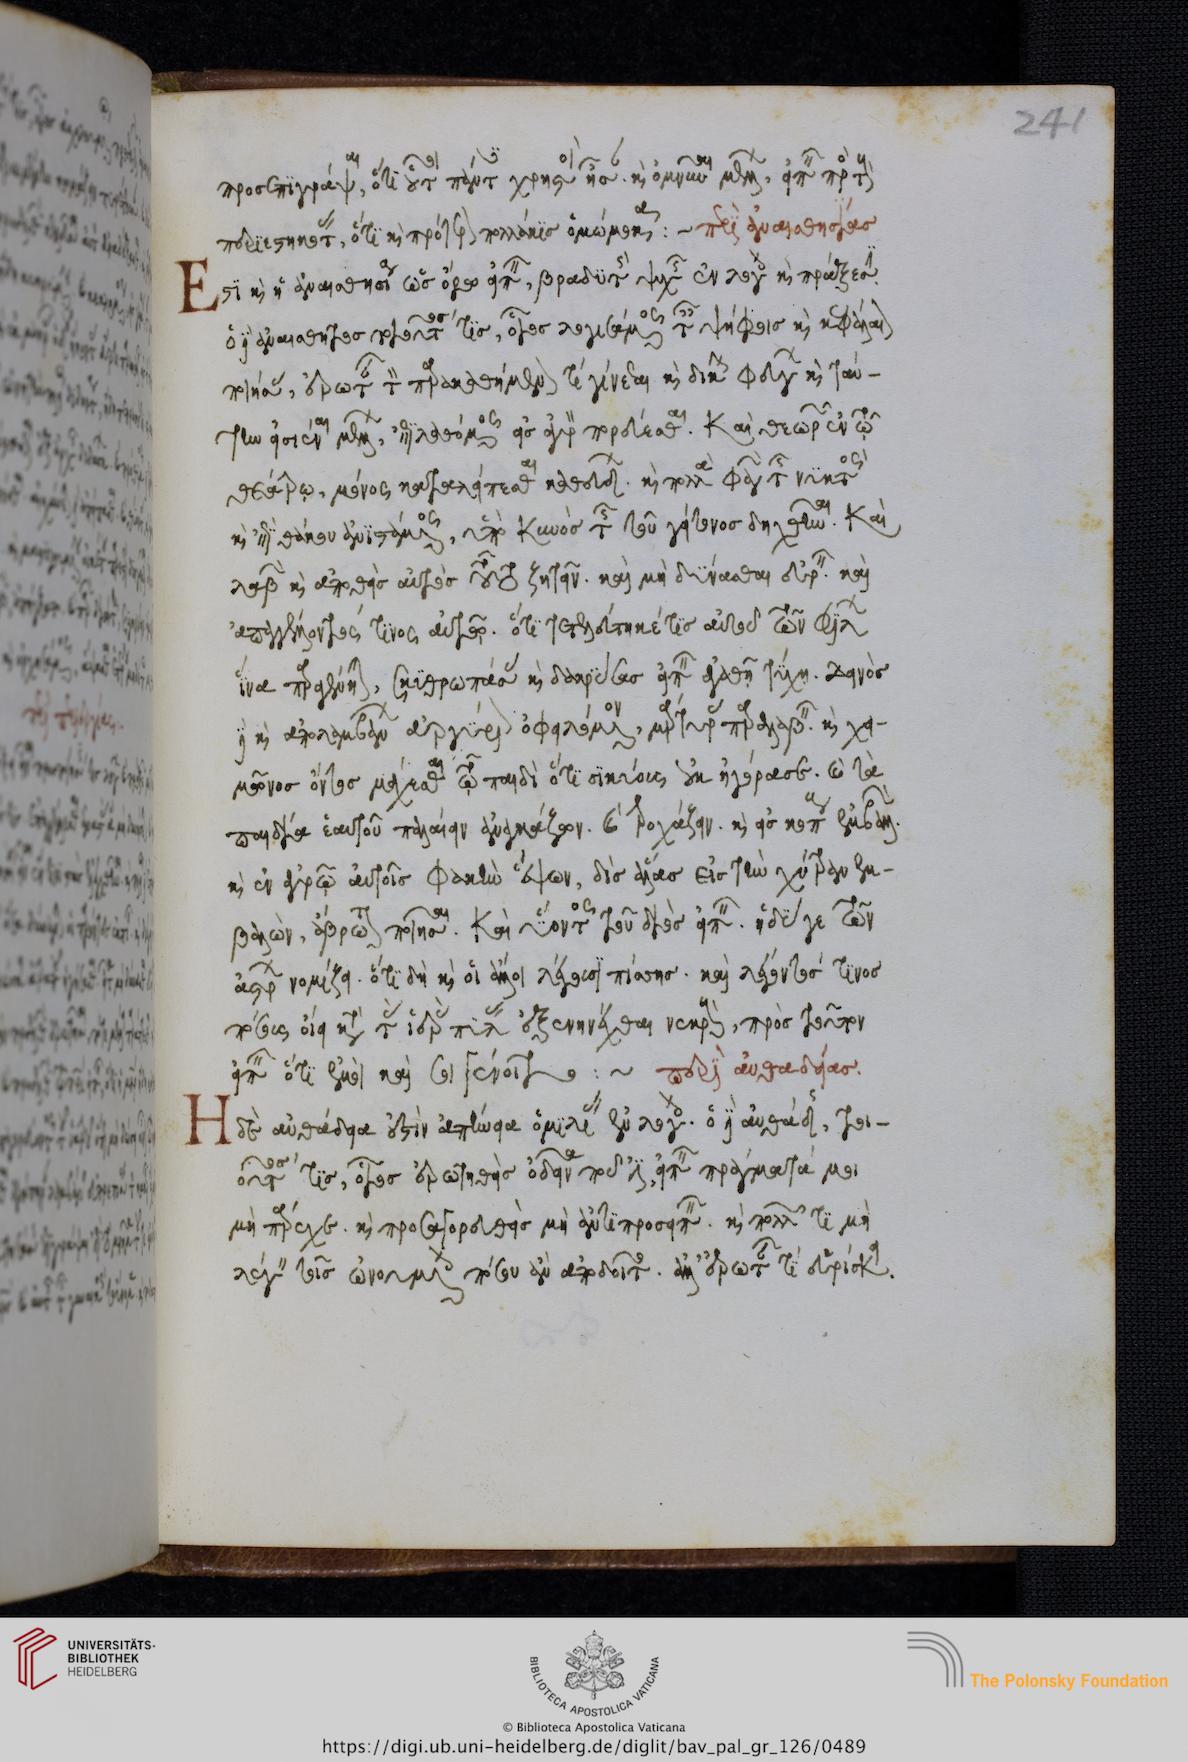 241
προσεπιγράψαι, ὅτι οὗτοι πάντες χρηστοὶ ἦσαν. καὶ ὀμνύναι μέλλων, εἰπεῖν πρὸς τοὺς
περιεστηκότας, ὅτι καὶ πρότερον πολλάκις ὀμώμοκα : ~ περὶ ἀναισθησίας
Ἔστι καὶ ἡ ἀναισθησία ὡς ὅρῳ εἰπεῖν, βραδυτὴς ψυχῆς ἐν λόγοις καὶ πράξεσιν.
ὁ δὲ ἀναίσθητος τοιοῦτός τις, οἷος λογισάμενος ταῖς ψήφοις καὶ κεφάλαιον
ποιήσας, ἐρωτᾶν τὸν παρακαθήμενον τί γίνεται καὶ δίκην φεύγων καὶ ταύ-
την εἰσιέναι μέλλων, ἐπιλαθόμενος εἰς ἀγρὸν πορεύεσθαι. Καὶ θεωρῶν ἐν τῷ
θεάτρῳ, μόνος καταλείπεσθαι καθεύδων. καὶ πολλὰ φαγὼν τῆς νυκτὸς
καὶ ἐπὶ θάκου ἀνιστάμενος, ὑπὸ κυνὸς τῆς τοῦ γείτονος δηχθῆναι. Καὶ
λαβὼν καὶ ἀποθεὶς αὐτὸς τοῦτο ζητεῖν. καὶ μὴ δύνασθαι εὑρεῖν. καὶ
ἀπαγγέλλοντός τινος αὐτῷ. ὅτι τετελεύτηκέ τις αὐτοῦ τῶν φίλων
ἵνα παραγένηται, σκυθρωπάσας καὶ δακρύσας εἰπεῖν ἀγαθῇ τύχῃ. δεινὸς
δὲ καὶ ἀπολαμβάνων ἀργύριον ὀφειλόμενον, μάρτυρας παραλαβεῖν. καὶ χει-
μῶνος ὄντος μάχεσθαι τῷ παιδὶ ὅτι σικύους οὐκ ἠγόρασε. καὶ τὰ
παιδία ἑαυτοῦ παλαίειν ἀναγκάζων. καὶ τροχάζειν. καὶ εἰς κόπους ἐμβάλλειν.
καὶ ἐν ἀγρῷ αὐτοῖς φακὴν ἕψων, δὶς ἅλας εἰς τὴν χύτραν ἐμ-
βαλὼν, ἄβρωτον ποιῆσαι. Καὶ ὕοντος τοῦ Διὸς εἰπεῖν. ἡδύ γε τῶν
ἄστρων νομίζει. ὅτι δὴ καὶ οἱ ἄλλοι λέγουσι πίσσης. καὶ λέγοντός τινος
πόσους οἴει κατὰ τὰς ἱερὰς πύλας ἐξενηνέχθαι νεκρούς, πρὸς τοῦτον
εἰπεῖν ὅτι ἐμοὶ καὶ σοὶ γένοιντο : ~ περὶ αὐθαδείας.
Ἡ δὲ αὐθάδεια ἐστὶν ἀπήνεια ὁμιλίας ἐν λόγοις. ὁ δὲ αὐθάδης, τοι-
οῦτός τις, οἷος ἐρωτηθεὶς ὁ δεῖνα ποῦ ἐστιν, εἰπεῖν πράγματά μοι
μὴ πάρεχε. καὶ προσαγορευθεὶς μὴ ἀντιπροσειπεῖν. καὶ πωλῶν τι μὴ
λέγειν τοῖς ὠνουμένοις πόσου ἂν ἀποδοῖτο. ἀλλ' ἐρωτᾶν τί εὑρίσκει.
UNIVERSITÄTS-
BIBLIOTHEK
HEIDELBERG
BIBLIOTECA APOSTOLICA VATICANA
The Polonsky Foundation
© Biblioteca Apostolica Vaticana
https://digi.ub.uni-heidelberg.de/diglit/bav_pal_gr_126/0489